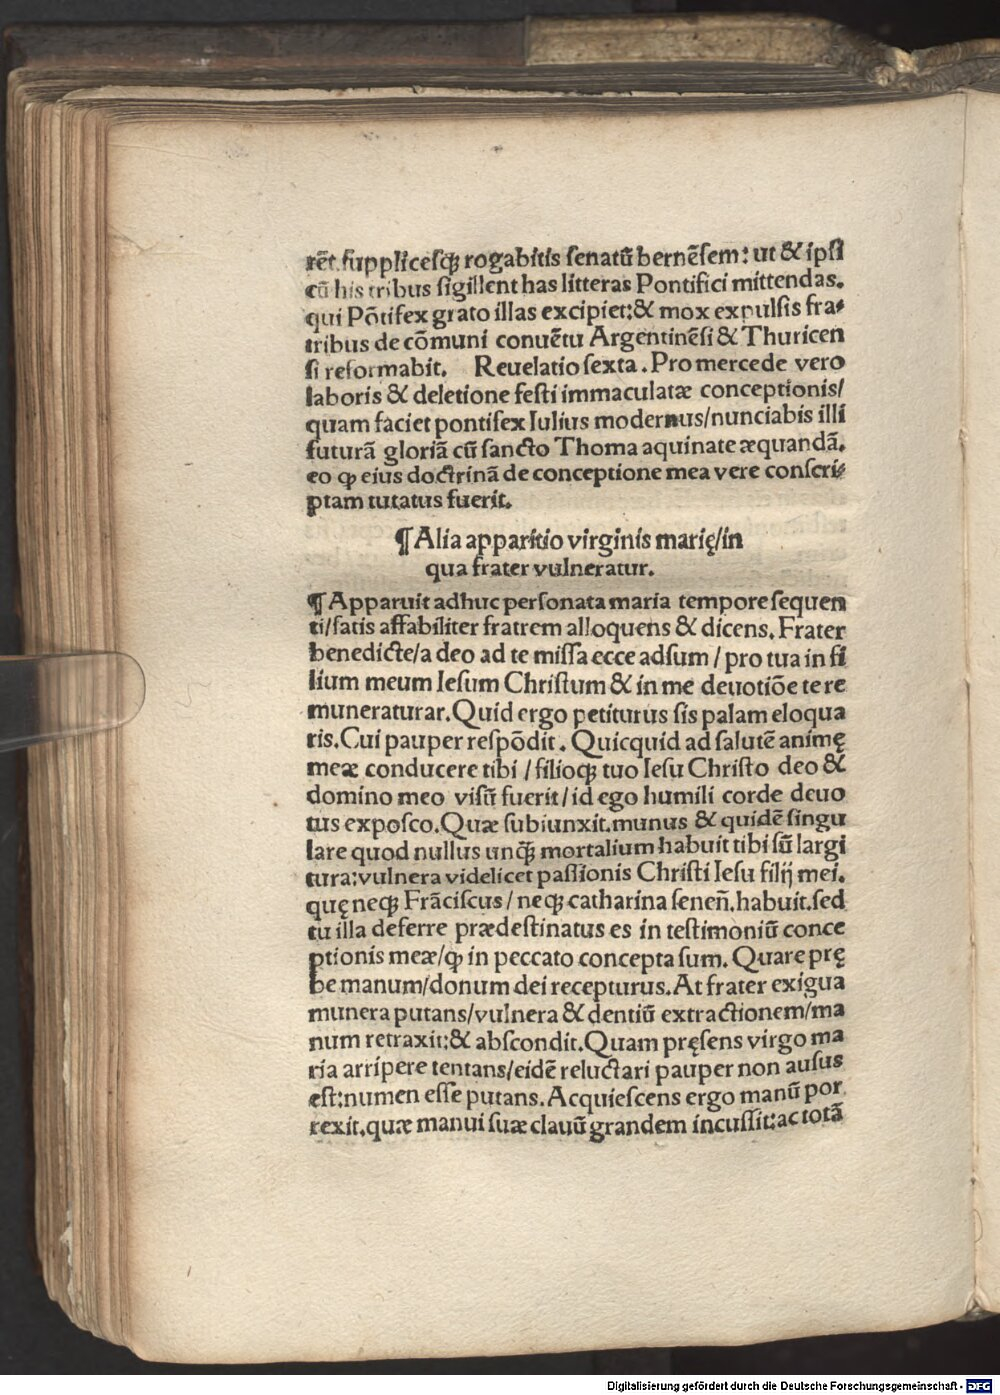 rēt. supplicesq; rogabitis senatū bernēsem: ut & ipsi
cū his tribus sigillent has litteras Pontifici mittendas.
qui Pōtifex grato illas excipiet: & mox expulsis fra-
tribus de cōmuni conuētu Argentinēsi & Thuricen
si reformabit. Reuelatio sexta. Pro mercede vero
laboris & deletione festi immaculatæ conceptionis/
quam faciet pontifex Iulius modernus/nunciabis illi
futurā gloriā cū sancto Thoma aquinate æquandā.
eo ꝙ eius doctrinā de conceptione mea vere conscri-
ptam tutatus fuerit.
¶ Alia apparitio virginis marię/in
qua frater vulneratur.
¶ Apparuit adhuc personata maria tempore sequen
ti/satis affabiliter fratrem alloquens & dicens. Frater
benedicte/a deo ad te missa ecce adsum / pro tua in fi
lium meum Iesum Christum & in me deuotiōe te re
muneraturar. Quid ergo petiturus sis palam eloqua
ris. Cui pauper respōdit. Quicquid ad salutē animę
meæ conducere tibi / filioq; tuo Iesu Christo deo &
domino meo visū fuerit/id ego humili corde deuo
tus exposco. Quæ subiunxit. munus & quidē singu
lare quod nullus unq̄ mortalium habuit tibi sū largi
tura: vulnera videlicet passionis Christi Iesu filij mei.
quę neq; Frāciscus / neq; catharina seneñ. habuit. sed
tu illa deferre prædestinatus es in testimoniū conce
ptionis meæ/ꝙ in peccato concepta sum. Quare prę
be manum/donum dei recepturus. At frater exigua
munera putans/vulnera & dentiū extractionem/ma
num retraxit: & abscondit. Quam pręsens virgo ma
ria arripere tentans/eidē reluctari pauper non ausus
est: numen esse putans. Acquiescens ergo manū por
rexit. quæ manui suæ clauū grandem incussit: ac totā
Digitalisierung gefördert durch die Deutsche Forschungsgemeinschaft - DFG